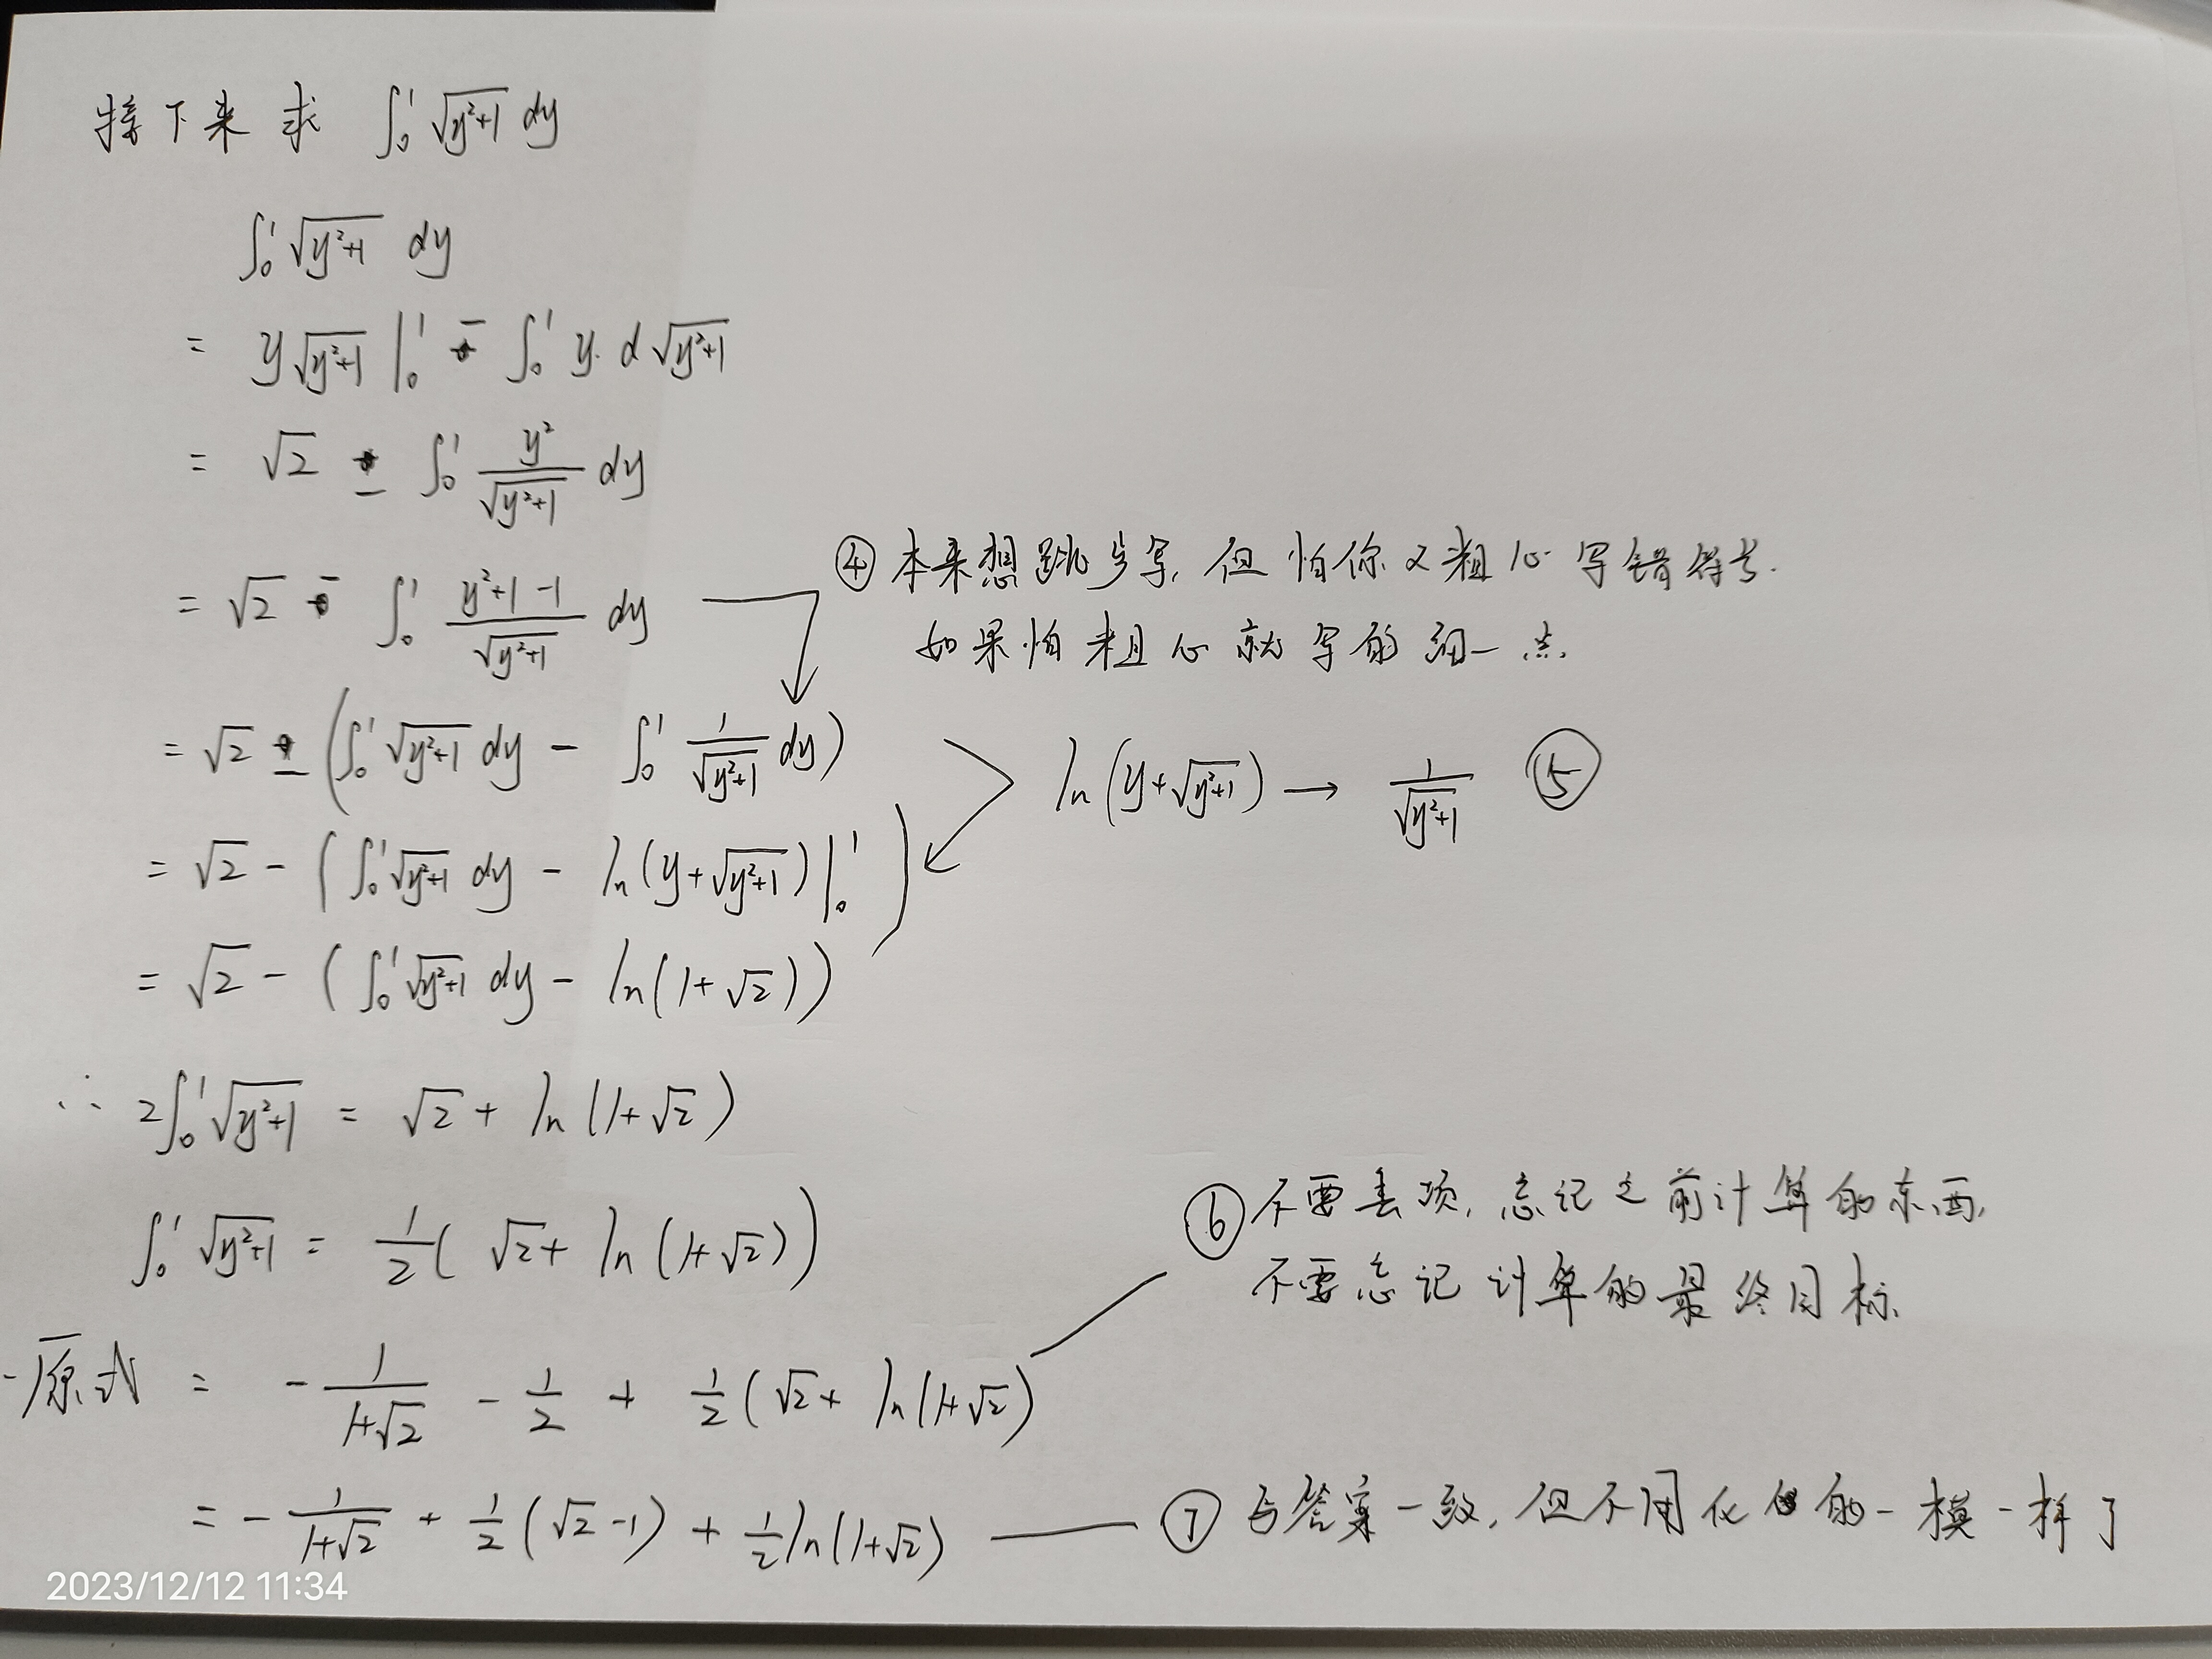 接下来求 ∫₀¹ √(y²+1) dy
∫₀¹ √(y²+1) dy
= y√(y²+1) |₀¹ - ∫₀¹ y · d√(y²+1)
= √2 - ∫₀¹ y²/√(y²+1) dy
= √2 - ∫₀¹ (y²+1-1)/√(y²+1) dy
④ 本来想跳步写, 但怕你又粗心写错符号.
如果怕粗心就写的细一点.
= √2 - (∫₀¹ √(y²+1) dy - ∫₀¹ 1/√(y²+1) dy)
ln(y+√(y²+1)) → 1/√(y²+1) ⑤
= √2 - (∫₀¹ √(y²+1) dy - ln(y+√(y²+1)) |₀¹)
= √2 - (∫₀¹ √(y²+1) dy - ln(1+√2))
∴ 2∫₀¹ √(y²+1) = √2 + ln(1+√2)
∫₀¹ √(y²+1) = 1/2 (√2 + ln(1+√2))
⑥ 不要丢项, 忘记之前计算的东西,
不要忘记计算的最终目标.
原式 = - 1/(1+√2) - 1/2 + 1/2 (√2 + ln(1+√2)
= - 1/(1+√2) + 1/2 (√2-1) + 1/2 ln(1+√2)
⑦ 与答案一致, 但不用化的一模一样了
2023/12/12 11:34